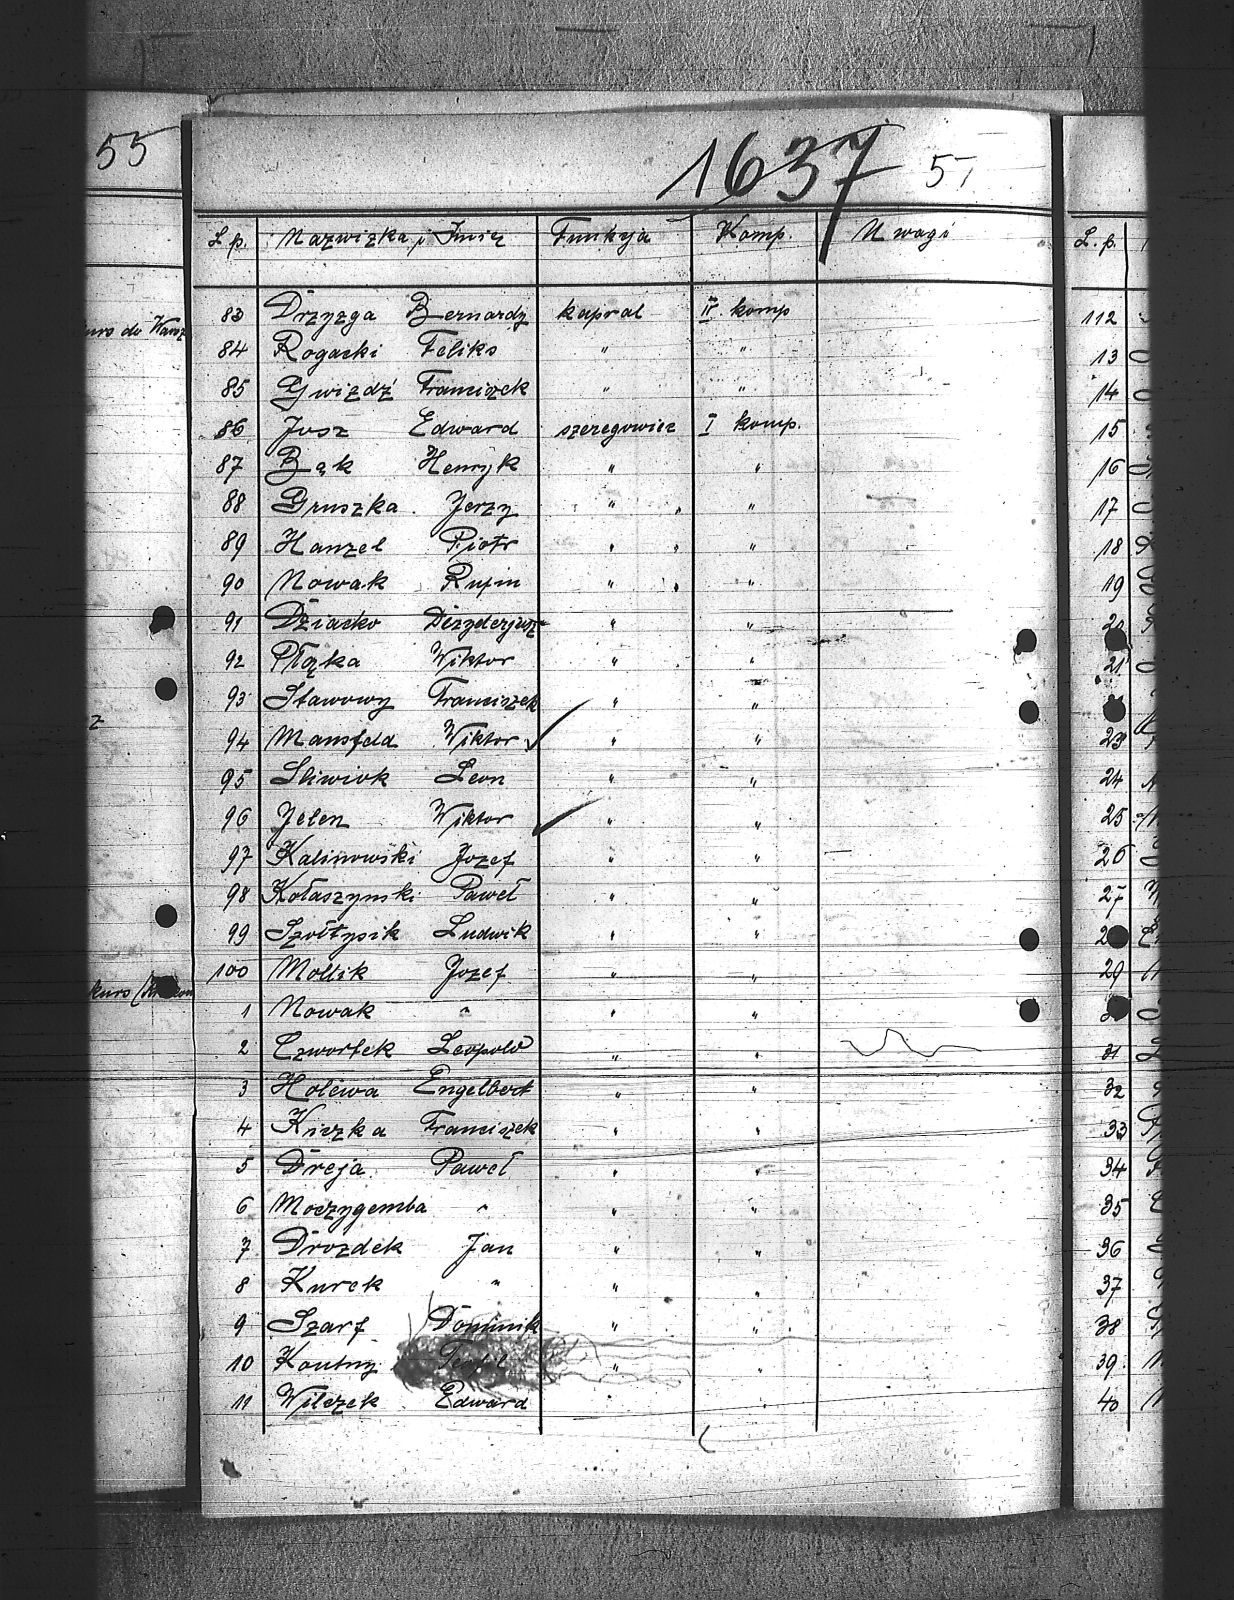 55
1637 57
L. p. Nazwiska i Imię Funkcja Komp. Uwagi L. p.
83 Drzyzga Bernardy kapral IV. komp 112
kurs do
84 Rogacki Feliks " " 13
85 Gwiżdź Franciszek " " 14
86 Josz Edward szeregowiec I komp. 15
87 Bąk Henryk " " 16
88 Gruszka Jerzy " " 17
89 Hanzel Piotr " " 18
90 Nowak Rufin " " 19
91 Dziacko Dezyderjusz " "
92 Płązka Wiktor " " 21
93 Stawowy Franciszek " "
94 Mansfeld Wiktor " " 23
95 Sliwiok Leon " " 24
96 Jelen Wiktor " " 25
97 Kalinowski Jozef " " 26
98 Kołaszynski Paweł " " 27
99 Szołtysik Ludwik " "
100 Mollik Jozef " " 29
kurs
1 Nowak " " "
2 Czwortek Leopold " " 31
3 Holewa Engelbert " " 32
4 Kiczka Franciszek " " 33
5 Dreja Paweł " " 34
6 Moczygemba " " " 35
7 Drozdek Jan " " 36
8 Kurek " " " 37
9 Szarf Dominik " " 38
10 Koutny Teofil " " 39
11 Wilczek Edward " " 40